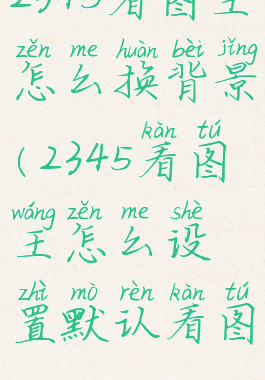 2345看图王
zěn me huàn bèi jǐng
怎么换背景
kàn tú
(2345看图
wáng zěn me shè
王怎么设
zhì mò rèn kàn tú
置默认看图